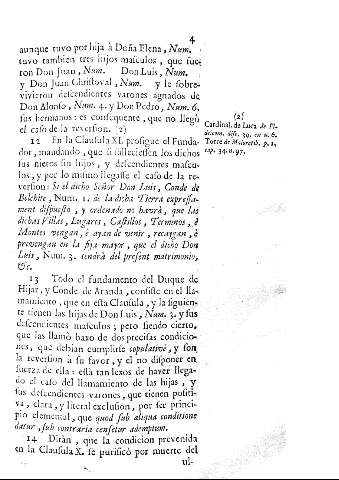 4
aunque tuvo por hija à Doña Elena, Num.
tuvo tambien tres hijos masculos, que fue-
ron Don Juan, Num. Don Luis, Num.
y Don Christoval, Num. y le sobre-
vivieron descendientes varones agnados de
Don Alonso, Num. 4. y Don Pedro, Num. 6.
sus hermanos: es consequente, que no llegò
el caso de la reversion. (2)
12 En la Clausula XI. prosigue el Funda-
dor, mandando, que si falleciessen los dichos
sus nietos sin hijos, y descendientes mascu-
los, y por lo mismo llegasse el caso de la re-
version: Si el dicho Señor Don Luis, Conde de
Belchite, Num. 1. de la dicha Tierra expressa-
ment dispuesto, y ordenado no havrà, que las
dichas Villas, Lugares, Castillos, Terminos, è
Montes vengan, è ayan de venir, recaigan, è
prevengan en la fija mayor, que el dicho Don
Luis, Num. 3. tendrà del present matrimonio,
&c.
13 Todo el fundamento del Duque de
Hijar, y Conde de Aranda, consiste en el lla-
mamiento, que en esta Clausula, y la siguien-
te tienen las hijas de Don Luis, Num. 3. y sus
descendientes masculos; pero siendo cierto,
que las llamò baxo de dos precisas condicio-
nes, que debian cumplirse copulativè, y son
la reversion à su favor, y el no disponer en
fuerza de ella: està tan lexos de haver llega-
do el caso del llamamiento de las hijas, y
sus descendientes varones, que tienen positi-
va, clara, y literal exclusion, por ser princi-
pio elemental, que quod sub aliqua conditione
datur, sub contraria censetur ademptum.
14 Diràn, que la condicion prevenida
en la Clausula X. se purificò por muerte del
ul-
(2)
Cardinal. de Luca de Fi-
deicom. disc. 39. ex n. 6.
Torre de Majoratib. p. 1.
cap. 34. n. 97.